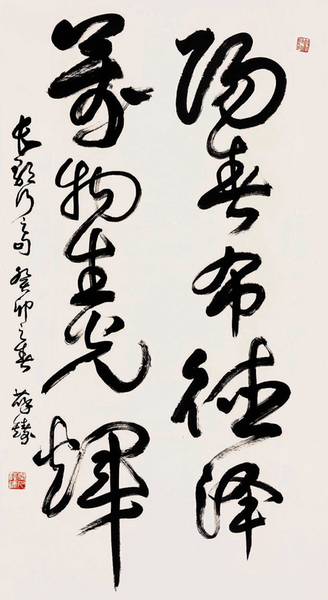 阳春布德泽
万物生光辉
长歌行之句 癸卯之春 薛臻